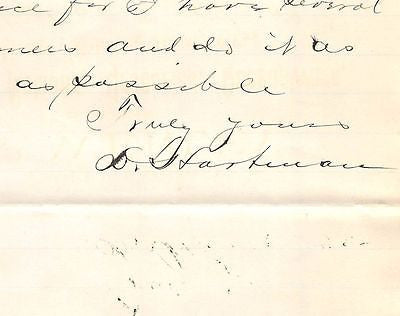 for I have several
and do it as
as possible
Truly yours
D. Hartman